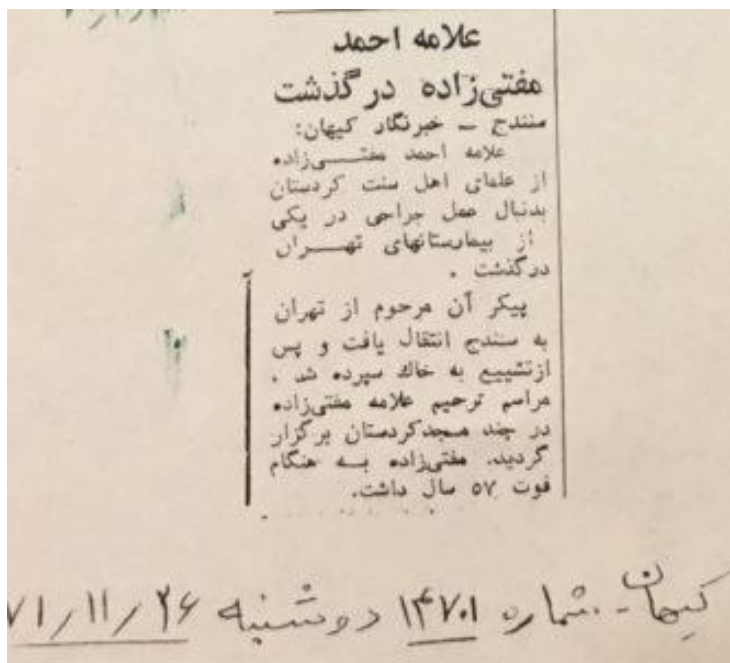 علامه احمد
مفتی‌زاده درگذشت
سنندج ـ خبرنگار کیهان:
علامه احمد مفتـــی‌زاده
از علمای اهل سنت کردستان
بدنبال عمل جراحی در یکی
از بیمارستانهای تهـــران
درگذشت .
پیکر آن مرحوم از تهران
به سنندج انتقال یافت و پس
ازتشییع به خاك سپرده شد .
مراسم ترحیم علامه مفتی‌زاده
در چند مسجدکردستان برگزار
گردید. مفتی‌زاده بـــه هنگام
فوت ۵۷ سال داشت.
کیهان ـ شماره ۱۴۷۰۱ دوشنبه ۷۱/۱۱/۲۶